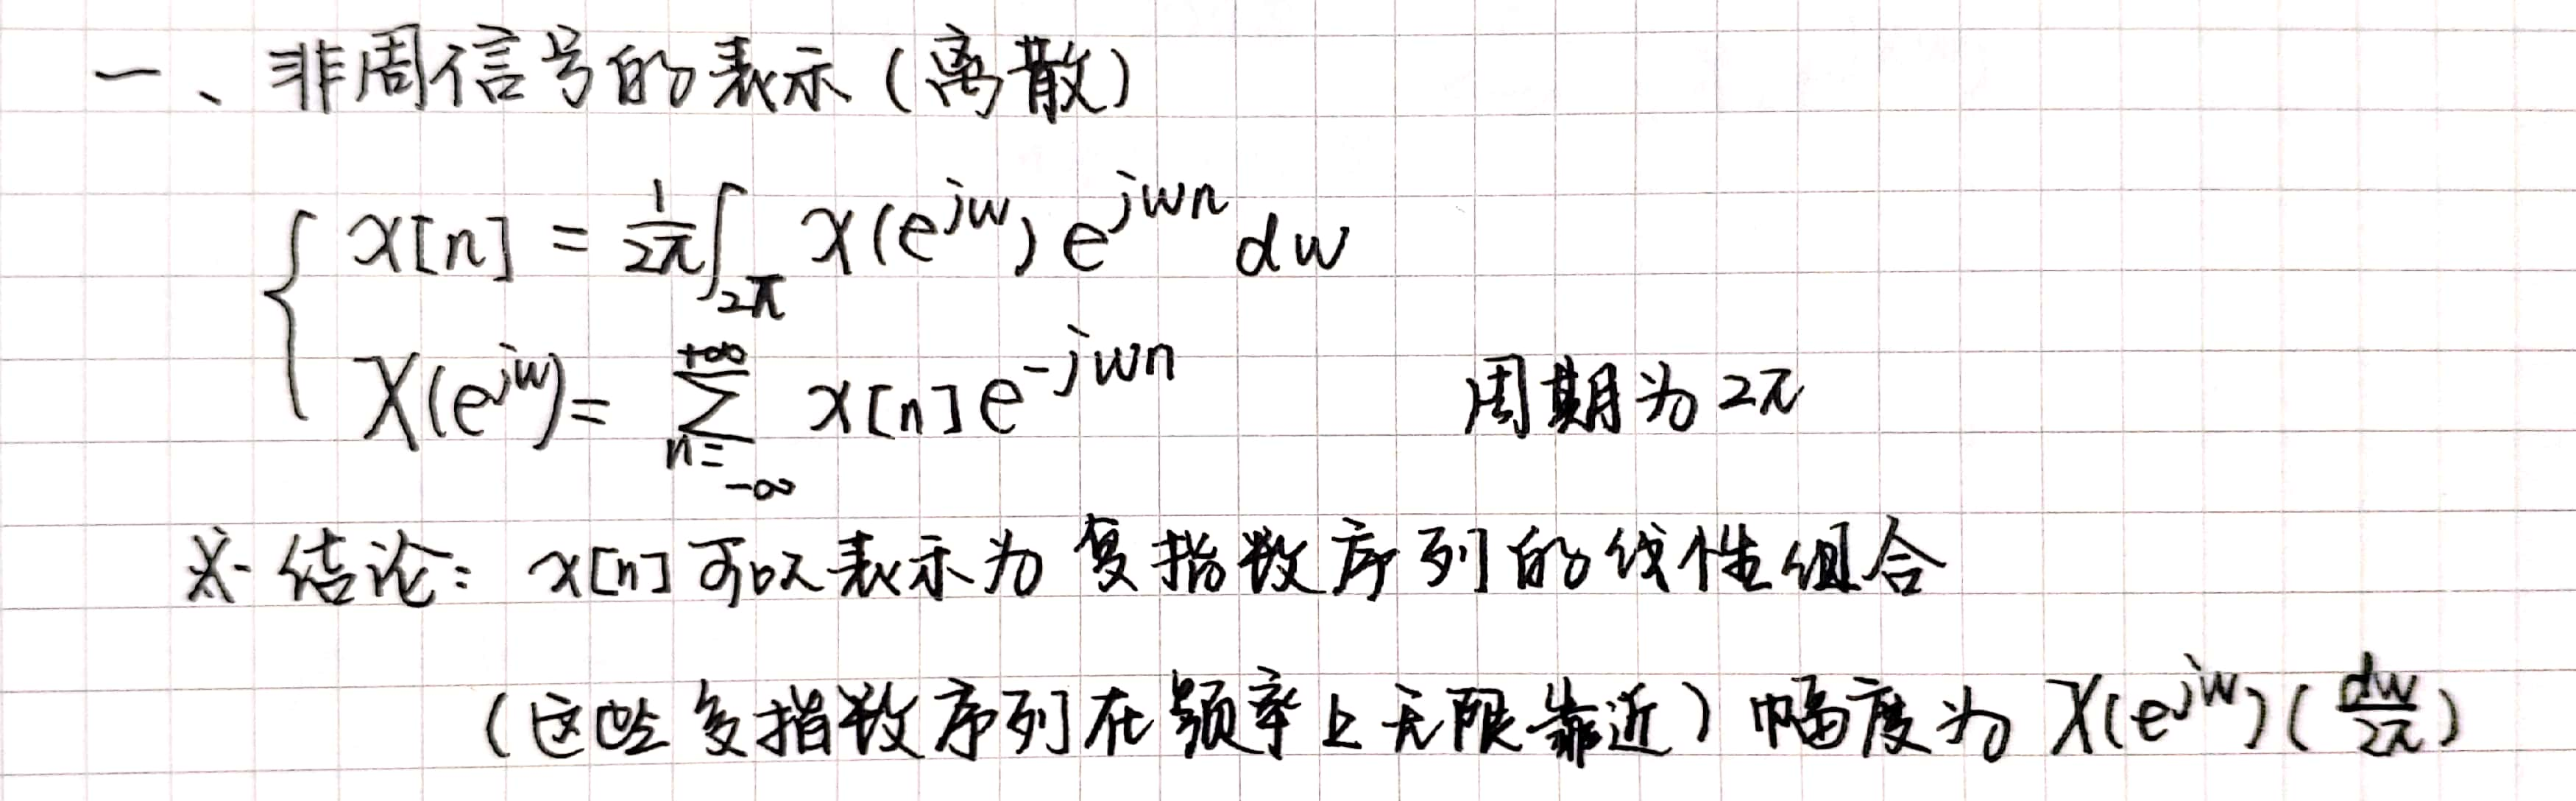 一、非周信号的表示（离散）
x[n] = 1/2π ∫_2π X(e^jw) e^jwn dw
X(e^jw) = ∑_{n=-∞}^{+∞} x[n] e^-jwn 周期为2π
※ 结论：x[n] 可以表示为复指数序列的线性组合
（这些复指数序列在频率上无限靠近）幅度为 X(e^jw)(dw/2π)